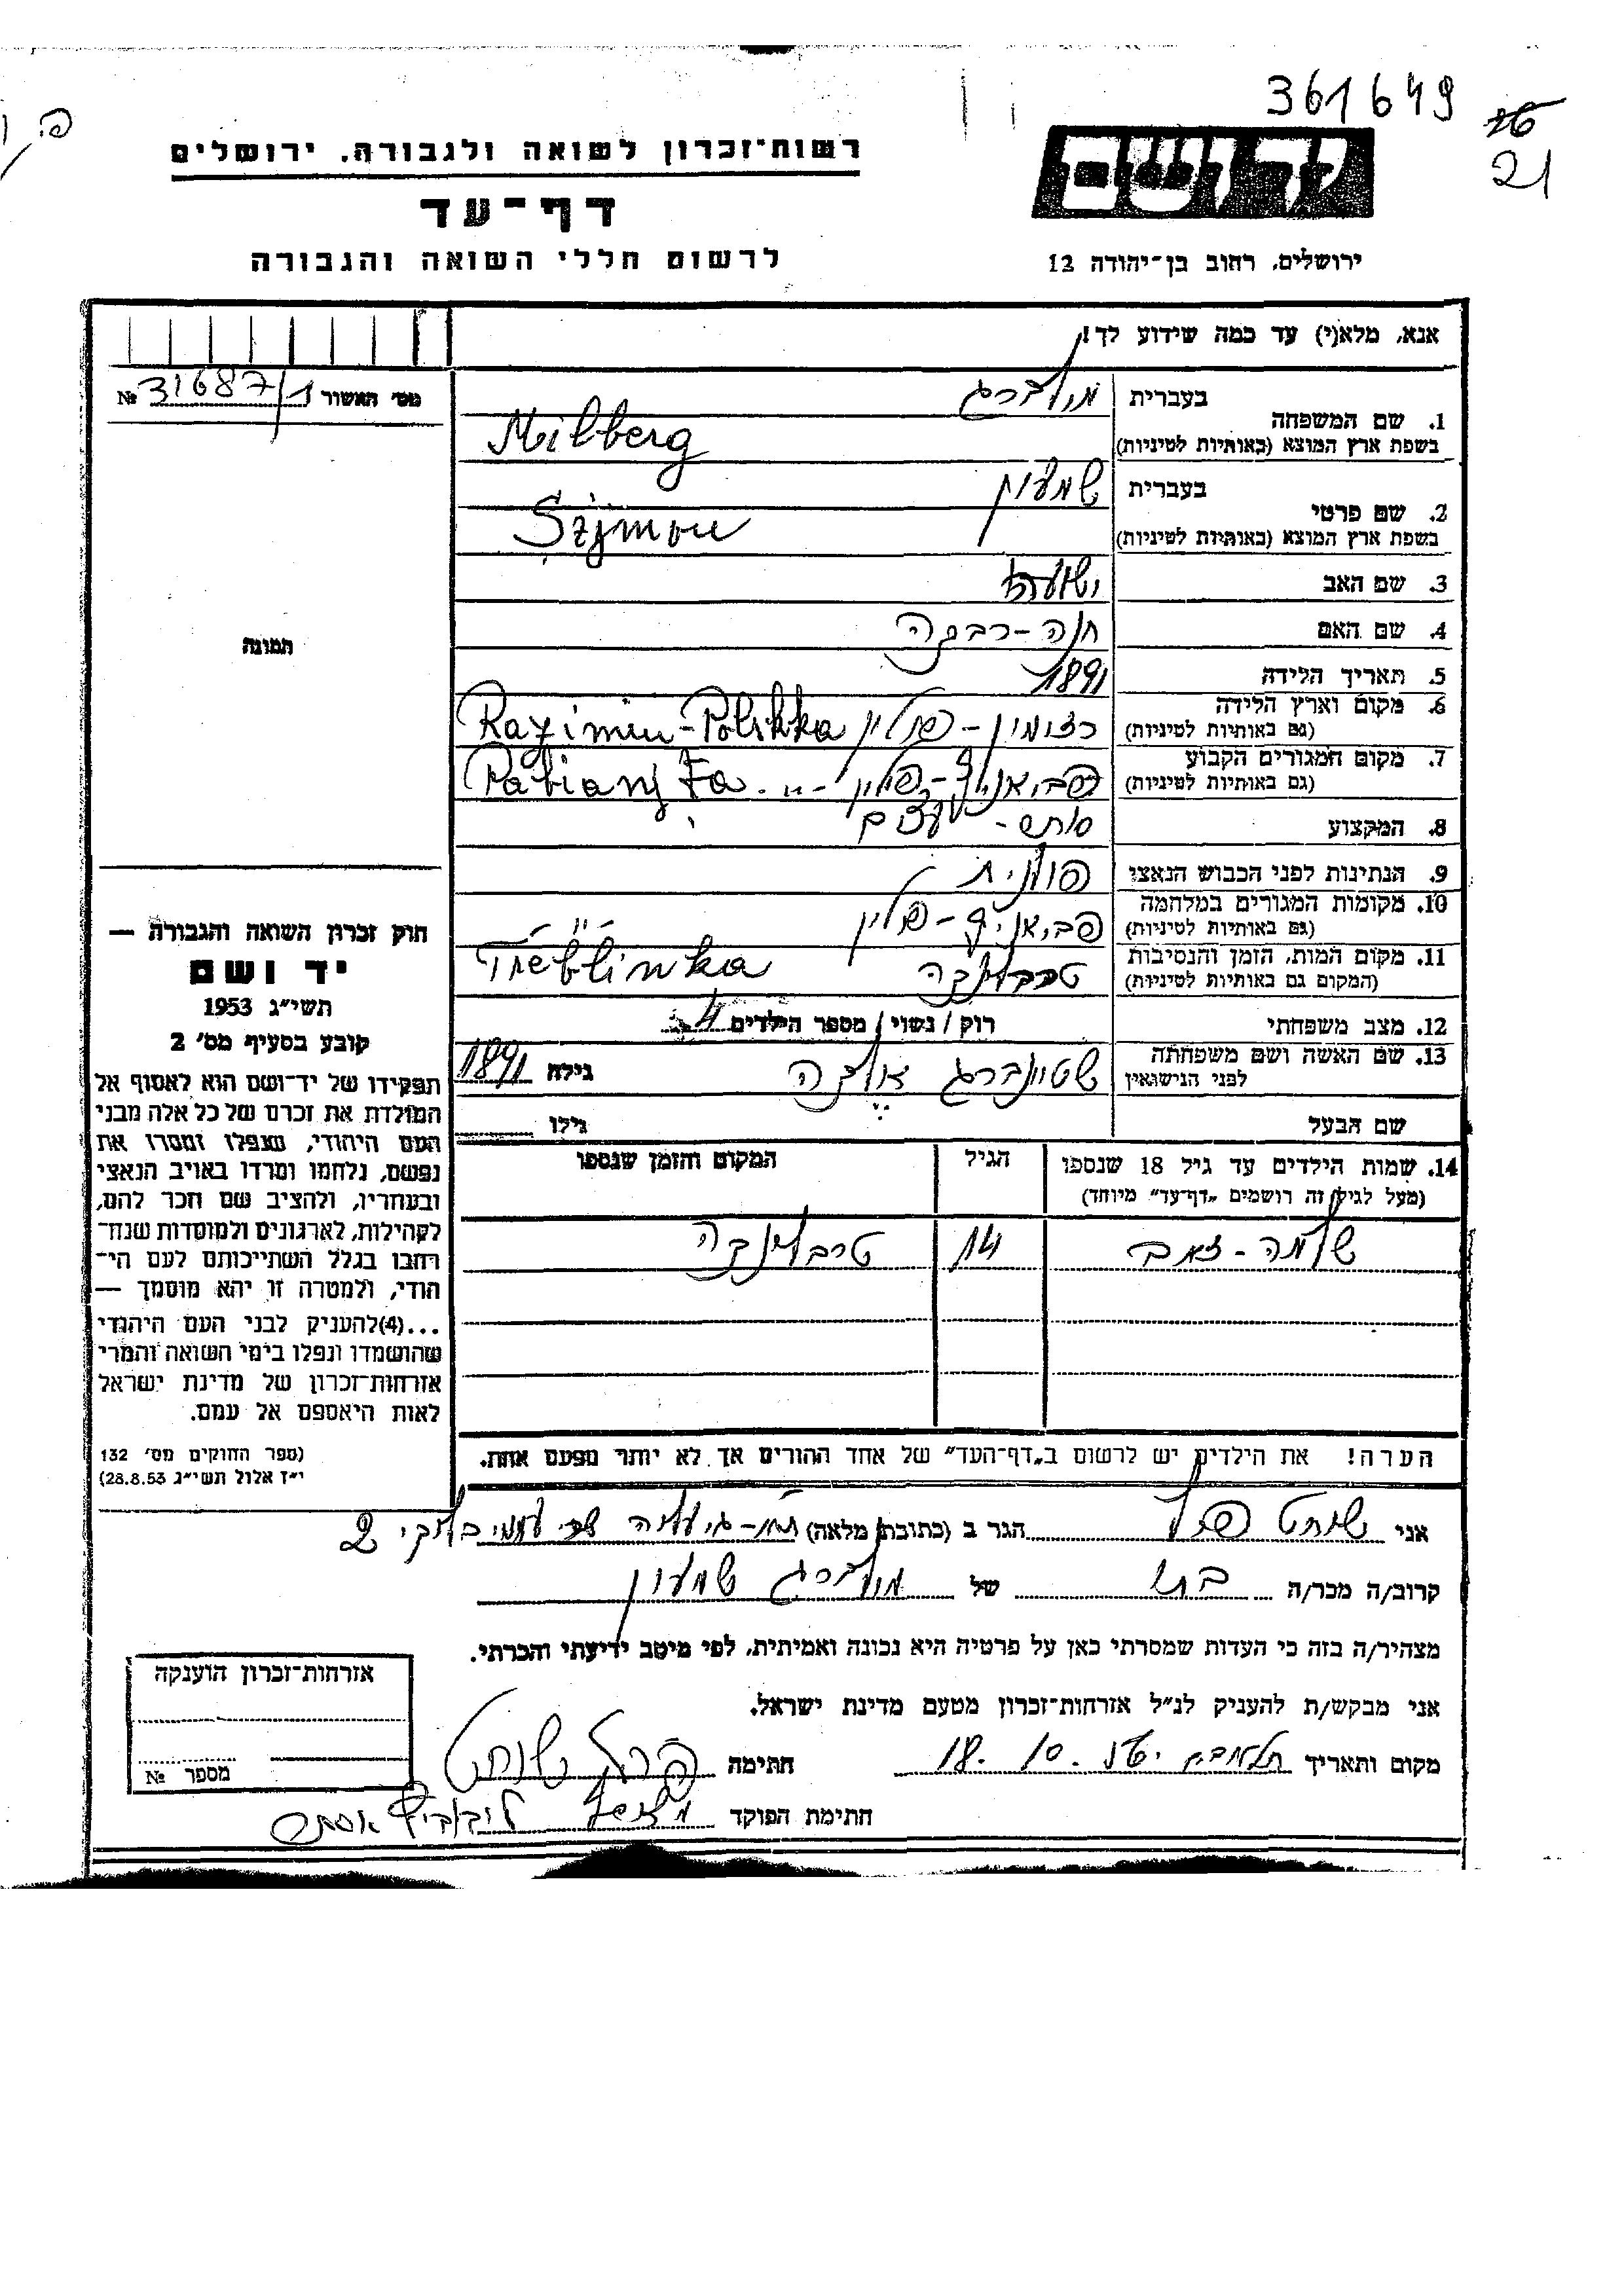 361649
26
21
רשות־זכרון לשואה ולגבורה, ירושלים
יד ושם
דף־עד
לרשום חללי השואה והגבורה
ירושלים, רחוב בן־יהודה 12
אנא, מלא(י) עד כמה שידוע לך!
מס׳ האשור № 31687/1
1. שם המשפחה בעברית מילברג
בשפת ארץ המוצא (באותיות לטיניות) Milberg
2. שם פרטי בעברית שמעון
בשפת ארץ המוצא (באותיות לטיניות) Szijmon
3. שם האב
4. שם האם חנה-רבקה
תמונה
5. תאריך הלידה 1891
6. מקום וארץ הלידה רצימין - פולין
(גם באותיות לטיניות) Razimin-Polskka
7. מקום המגורים הקבוע פביאניץ - פולין
(גם באותיות לטיניות)
8. המקצוע סוחר -
9. הנתינות לפני הכבוש הנאצי פולנית
10. מקומות המגורים במלחמה פביאניץ - פולין
(גם באותיות לטיניות) - " -
11. מקום המות, הזמן והנסיבות טרבלינקה
(המקום גם באותיות לטיניות) Treblinka
12. מצב משפחתי רוק / נשוי / מספר הילדים 4
13. שם האשה ושם משפחתה
לפני הנישואין שטיינברג גילה 1891
שם הבעל גילו
14. שמות הילדים עד גיל 18 שנספו הגיל המקום והזמן שנספו
(מעל לגיל זה רושמים „דף־עד״ מיוחד)
שלמה-זאב 14 טרבלינקה
הערה! את הילדים יש לרשום ב„דף־העד״ של אחד ההורים אך לא יותר מפעם אחת.
חוק זכרון השואה והגבורה —
יד ושם
תשי״ג 1953
קובע בסעיף מס׳ 2
תפקידו של יד־ושם הוא לאסוף אל
המולדת את זכרם של כל אלה מבני
העם היהודי, שנפלו ומסרו את
נפשם, נלחמו ומרדו באויב הנאצי
ובעוזריו, ולהציב שם וזכר להם,
לקהילות, לארגונים ולמוסדות שנח־
רבו בגלל השתייכותם לעם הי־
הודי, ולמטרה זו יהא מוסמך —
...(4)להעניק לבני העם היהודי
שהושמדו ונפלו בימי השואה והמרי
אזרחות־זכרון של מדינת ישראל
לאות היאספם אל עמם.
(ספר החוקים מס׳ 132
י״ז אלול תשי״ג 28.8.53)
אני שוחט הגר ב (כתובת מלאה) 2
קרוב/ה מכר/ה בת של מילברג שמעון
מצהיר/ה בזה כי העדות שמסרתי כאן על פרטיה היא נכונה ואמיתית, לפי מיטב ידיעתי והכרתי.
אני מבקש/ת להעניק לנ״ל אזרחות־זכרון מטעם מדינת ישראל.
מקום ותאריך 18. 10. חתימה שוחט
חתימת הפוקד
אזרחות־זכרון הוענקה
מספר №